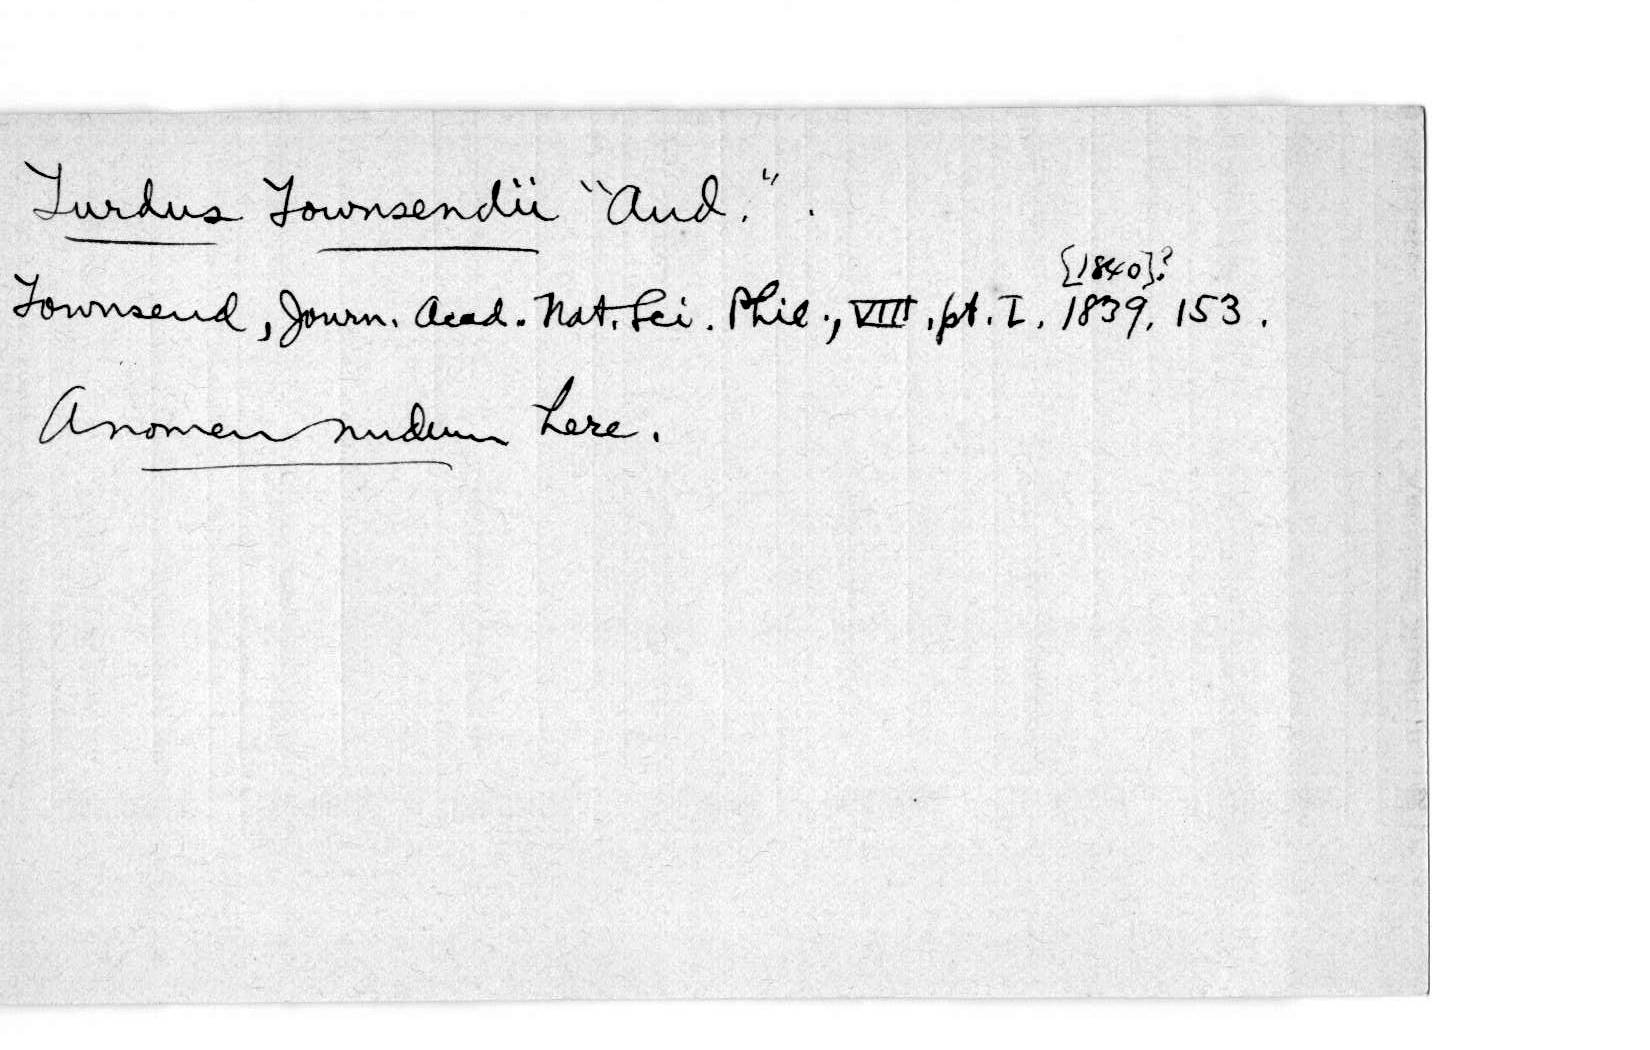 Turdus Townsendii "Aud.".
[1840]?
Townsend, Journ. Acad. Nat. Sci. Phil., VIII, pt. I, 1839, 153.
A nomen nudum here.